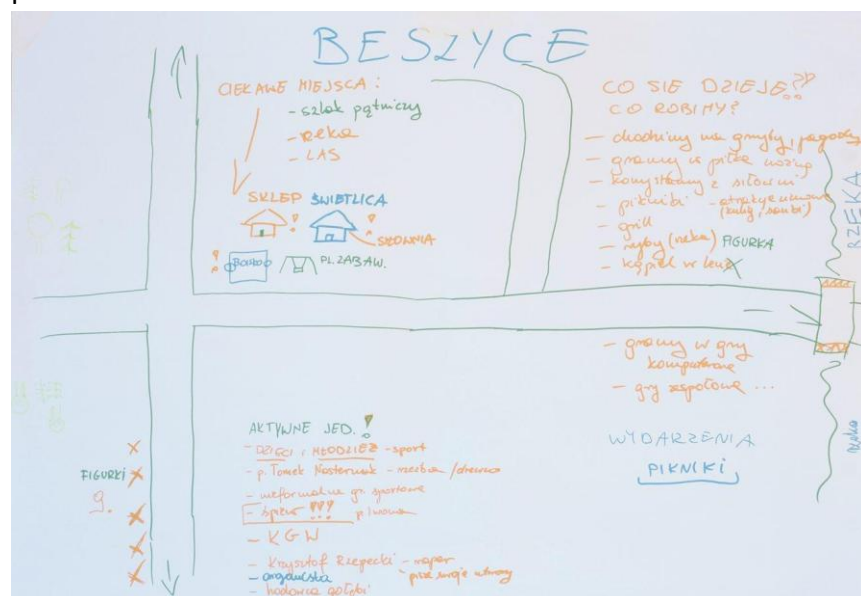 BESZYCE
CIEKAWE MIEJSCA:
- szlak pątniczy
- Rzeka
- LAS
SKLEP ŚWIETLICA
! !
SIŁOWNIA
! BOISKO PL. ZABAW.
CO SIE DZIEJE?!
CO ROBIMY?
- chodzimy na grzyby, jagody
- gramy w piłkę nożną
- korzystamy z siłowni
- pikniki - atrakcje
- grill
- ryby (rzeka) FIGURKA
- kąpiel w
RZEKA
- gramy w gry
komputerowe
- gry zespołowe ...
WYDARZENIA
PIKNIKI
Rzeka
FIGURKI
9.
AKTYWNE JED. !
- DZIECI i MŁODZIEŻ - sport
- p. Tomek - rzeźba / drewno
- nieformalne gr. sportowe
- śpiew !!!
- KGW
- Krzysztof Rzepecki - raper
- pisze swoje utwory
- organista
- hodowca gołębi